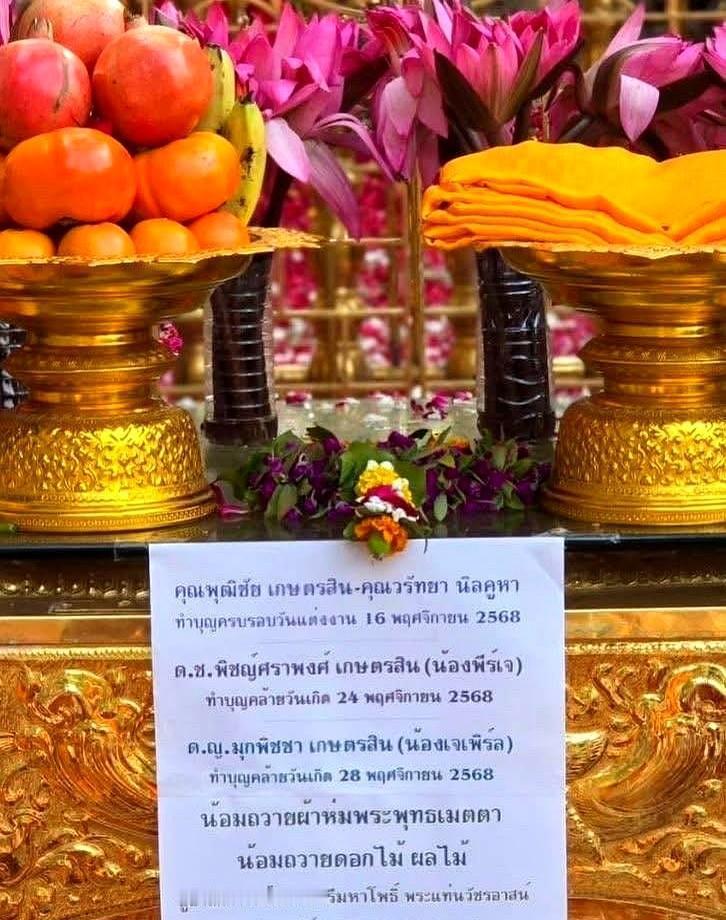 คุณพุฒิชัย เกษตรสิน-คุณวรัทยา นิลคูหา
ทำบุญครบรอบวันแต่งงาน 16 พฤศจิกายน 2568
ด.ช.พิชญ์ศราพงศ์ เกษตรสิน (น้องพีร์เจ)
ทำบุญคล้ายวันเกิด 24 พฤศจิกายน 2568
ด.ญ.มุกพิชชา เกษตรสิน (น้องเจเพิร์ล)
ทำบุญคล้ายวันเกิด 28 พฤศจิกายน 2568
น้อมถวายผ้าห่มพระพุทธเมตตา
น้อมถวายดอกไม้ ผลไม้
รีมหาโพธิ์ พระแท่นวัชรอาสน์